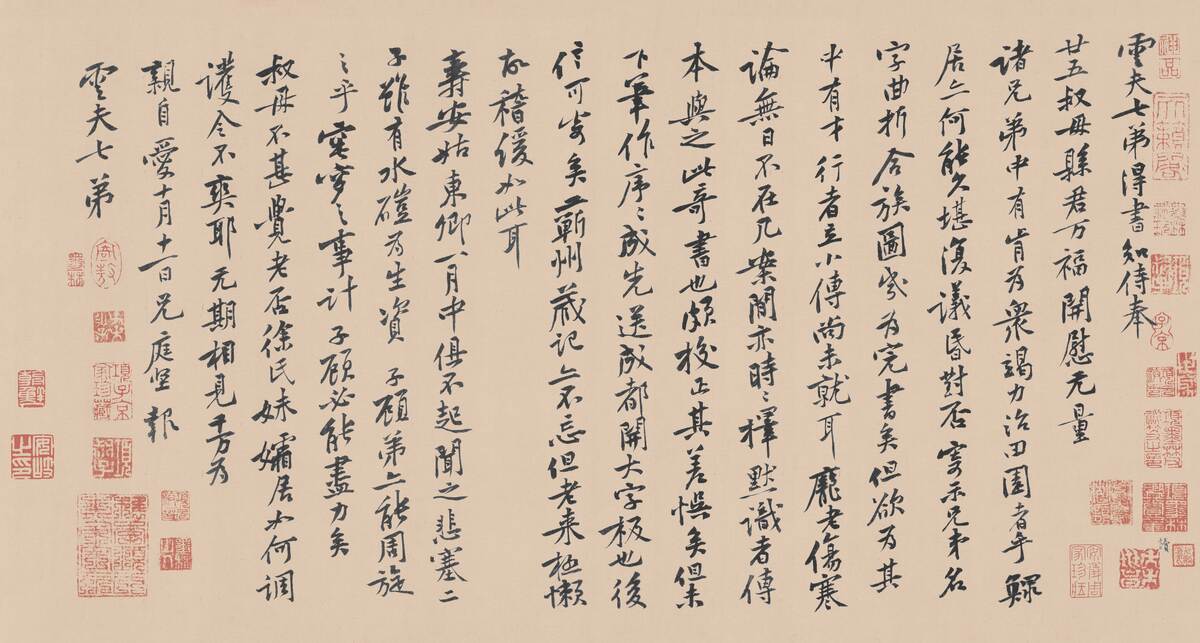 雲夫七弟得書知侍奉
廿五叔母縣君万福開慰无量
諸兄弟中有肯為衆竭力治田園者乎鰥
居亦何能久堪復議昏對否寄示兄弟名
字曲折合族圖為完書矣但欲為其
中有才行者立小傳尚未就耳龐老傷寒
論無日不在几案間亦時〻擇默識者傳
本與之此奇書也頗校正其差悞矣但未
下筆作序〻成先送成都開大字板也後
信可寄矣王蘄州葳記亦不忘但老来極懒
故稽緩如此耳
壽安姑東卿一月中俱不起聞之悲塞二
子雖有水磑為生資子顧弟亦能周旋
之乎窀穸之事計子顧必能盡力矣
叔母不甚覺老否徐氏妹孀居如何調
護令不爽耶无期相見千万為
親自愛十月十一日兄庭坚報
雲夫七弟
神品
子京
項子京家珍藏
安儀周家珍藏
安岐之印